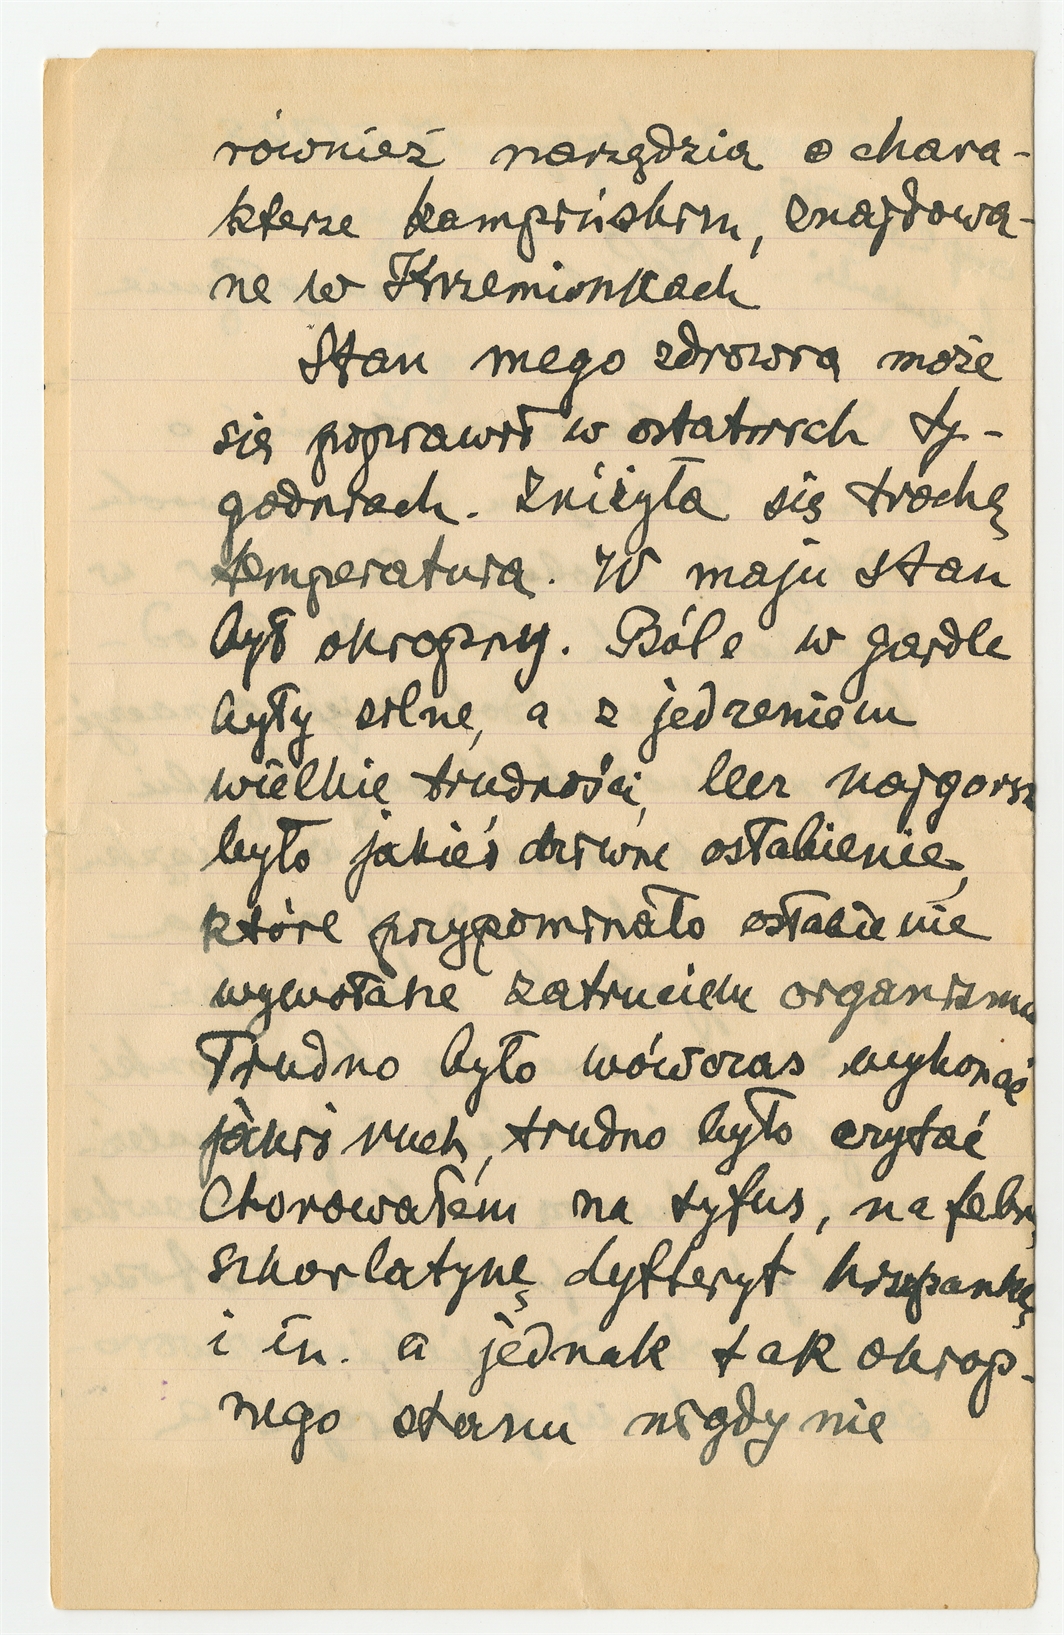 również narzędzia o chara-
kterze kampińskim, znajdowa-
ne w Krzemionkach
Stan mego zdrowia może
się poprawił w ostatnich ty-
godniach. Zniżyła się trochę
temperatura. W maju stan
był okropny. Bóle w gardle
były silne, a z jedzeniem
wielkie trudności, lecz najgorsz
było jakieś dziwne osłabienie,
które przypominało osłabienie
wywołane zatruciem organizmu
Trudno było wówczas wykonać
jakiś ruch, trudno było czytać
Chorowałem na tyfus, na febrę,
szkarlatynę dyfteryt hiszpankę
i in. a jednak tak okrop-
nego stanu nigdy nie